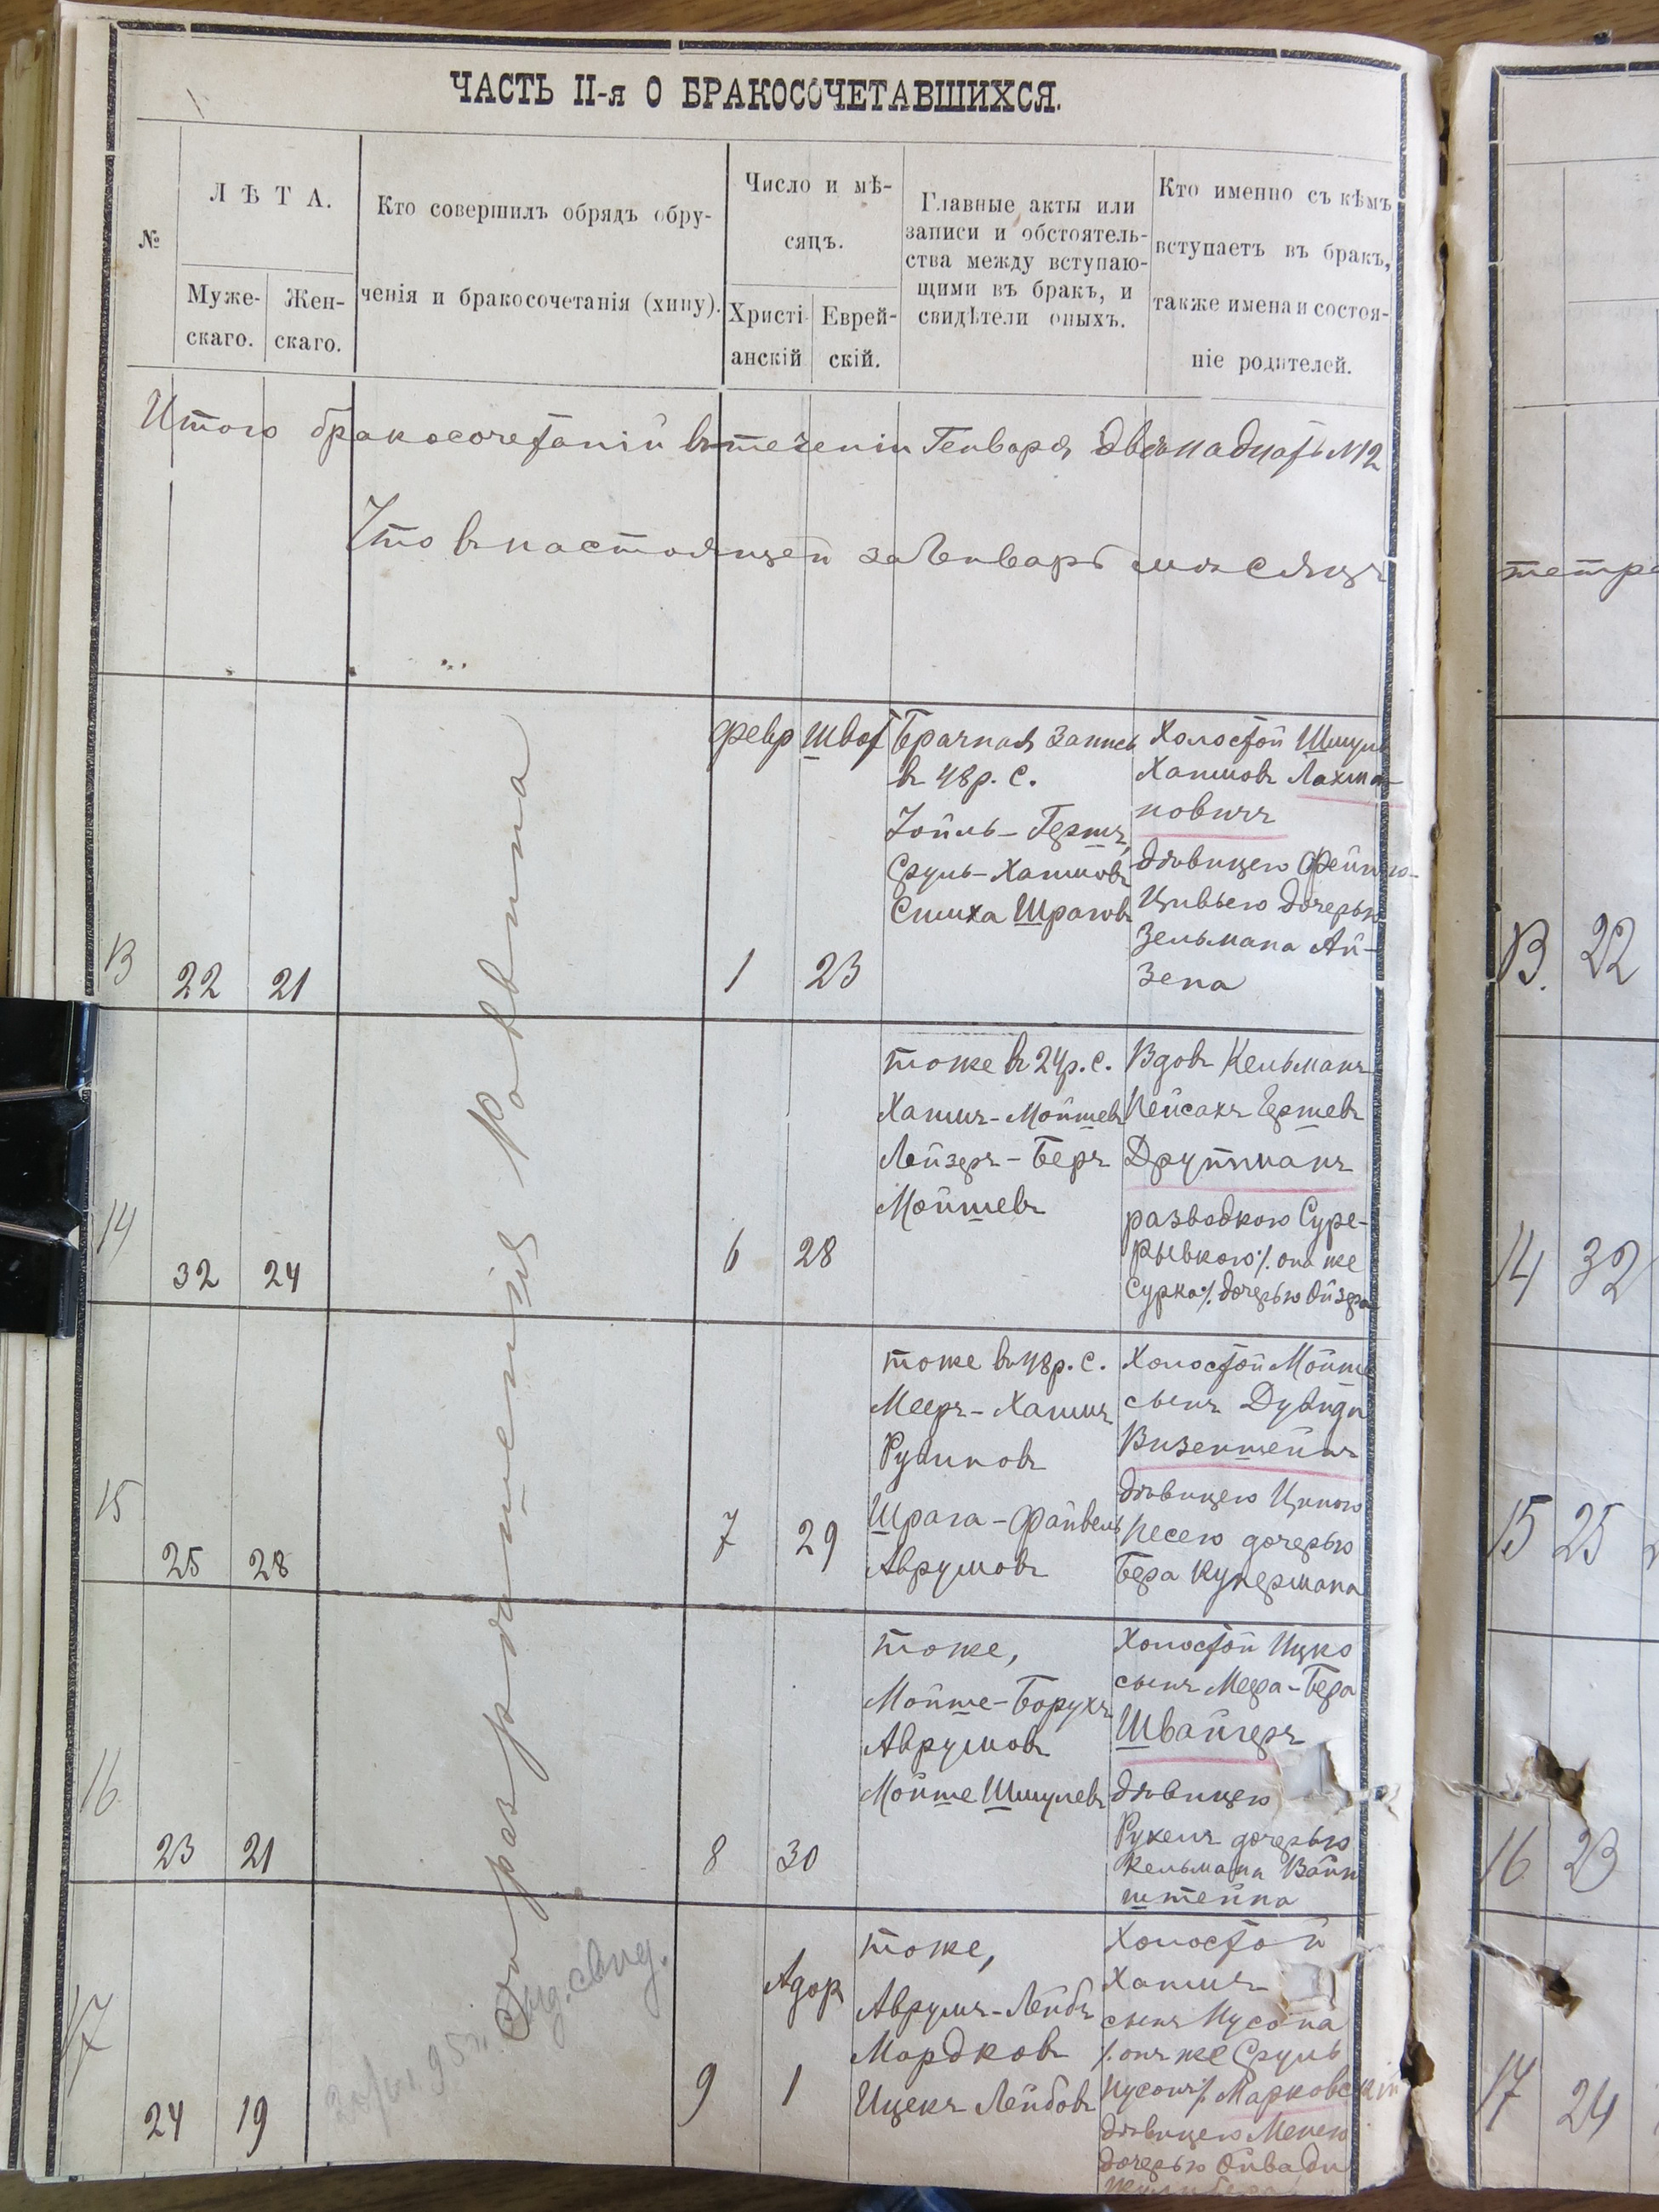 ЧАСТЬ II-я О БРАКОСОЧЕТАВШИХСЯ.
№
ЛѢТА.
Муже-
скаго.
Жен-
скаго.
Кто совершилъ обрядъ обру-
ченія и бракосочетанія (хипу).
Число и мѣ-
сяцъ.
Христі-
анскій
Еврей-
скій.
Главные акты или
записи и обстоятель-
ства между вступаю-
щими въ бракъ, и
свидѣтели оныхъ.
Кто именно съ кѣмъ
вступаетъ въ бракъ,
также имена и состоя-
ніе родителей.
Итого бракосочетаній въ теченіи Генваря двѣнадцать №12
Что въ настоящей за Генварь мѣсяцъ
тетра
Съ разрѣшенія Раввина
13
22
21
Февр
1
Шват
23
Брачная запись
въ 48 р. с.
Хоиль-Гершъ,
Сруль-Хаимовъ
Симха Шраговъ
Холостой Шмуль
Хаимовъ Лахма-
новичъ
дѣвицею Фейго-
Цивьею дочерью
Зельмана Ай-
зена
14
32
24
6
28
тоже въ 24 р. с.
Хаимъ-Мойшевъ
Лейзеръ-Беръ
Мойшевъ
Вдовъ Кельманъ
Пейсахъ Гершевъ
Друтманъ
разводкою Суре-
Рывкою /. она же
Сурка /. дочерью Ойзера
15
25
28
7
29
тоже въ 48 р. с.
Мееръ-Хаимъ
Рувиновъ
Шрага-Файвель
Аврумовъ
Холостой Мойше
сынъ Дувида
Визенштейнъ
дѣвицею Ципою
Песею дочерью
Бера Купермана
16
23
21
8
30
тоже,
Мойше-Борухъ
Аврумовъ
Мойше Шмулевъ
Холостой Ицко
сынъ Меера-Бера
Швайгеръ
дѣвицею
Рухель дочерью
Кельмана Вайн
штейна
17
24
19
9
Адар
1
тоже,
Аврумъ-Лейбъ
Мордковъ
Ицекъ Лейбовъ
Холостой
Хаимъ
сынъ Нусона
/. онъ же Сруль
Нусонъ /. Марковскій
дѣвицею Менею
дочерью Овади
13.
22
14
32
15
25
16
23
17
24